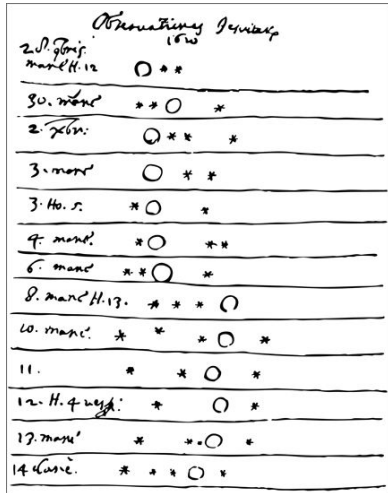 Observationes Jesuitarum
1620
2. S. 9bris
mane H. 12
30. mane
2. xbr:
3. mane
3. Ho. 5.
4. mane.
6. mane
8. mane H. 13.
10. mane.
11.
12. H. 4 vesp:
13. mane
14